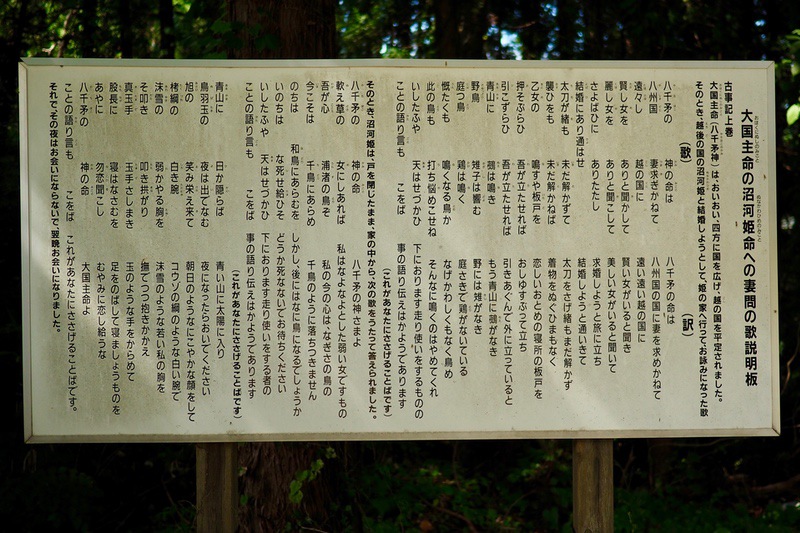 大国主命の沼河姫命への妻問の歌説明板
おおくにぬしのみこと　ぬなかわひめのみこと
古事記上巻
大国主命(八千矛神)は、おいおい、四方に国を広げ、越の国を平定されました。
そのとき、越後の国の沼河姫と結婚しようとして、姫の家へ行って、お詠みになった歌
(歌)　(訳)
八千矛の　神の命は　八千矛の命は
八州国　妻求ぎかねて　八州国の国に妻を求めかねて
遠々し　越の国に　遠い遠い越の国に
賢し女を　ありと聞かして　賢い女がいると聞き
麗し女を　ありと聞こして　美しい女がいると聞いて
さよばひに　ありたたし　求婚しようと旅に立ち
結婚にあり通はせ　結婚しようと通いきて
太刀が緒も　未だ解かずて　太刀をさげ緒もまだ解かず
襲ひをも　未だ解かねば　着物をぬぐひまもなく
乙女の　鳴すや板戸を　恋しいおとめの寝所の板戸を
押そふらひ　吾が立たせれば　おしゆすぶって立ち
引こずらひ　吾が立たせれば　引きあぐんで外に立っていると
青山に　鵼は鳴き　もう青山に鵼がなき
野鳥　雉子は響む　野には雉がなき
庭つ鳥　鶏は鳴く　庭さきで鶏がないている
慨たくも　鳴くなる鳥か　なげかわしくもなく鳥め
此の鳥も　打ち悩めこせね　そんなに鳴くのはやめてくれ
いしたふや　天はせづかひ　下におります走り使いをするものの
ことの語り言も　こをば　事の語り伝えはかようであります
(これがあなたにささげることばです)
そのとき、沼河姫は、戸を閉じたまま、家の中から、次の歌をうたって答えられました。
八千矛の　神の命　八千矛の神さまよ
軟え草の　女にしあれば　私はなよなよとした弱い女ですもの
吾が心　浦渚の鳥ぞ　私の今の心は、なぎさの鳥の
今こそは　千鳥にあらめ　千鳥のように落ちつきません
のちは　和鳥にあらむを　しかし、後にはなに鳥になるでしょうか
いのちは　な死せ給ひそ　どうか死なないでお待ちください
いしたふや　天はせづかひ　下におります走り使いをする者の
ことの語り言も　こをば　事の語り伝えはかようであります
(これがあなたにささげることばです)
青山に　日か隠らば　青い山に太陽に入り
烏羽玉の　夜は出でなむ　夜になったらおいでください
旭の　笑み栄え来て　朝日のようなにこやかな顔をして
栲綱の　白き腕　コウゾの綱のような白い腕で
沫雪の　弱かやる胸を　沫雪のような若い私の胸を
そ叩き　叩き拱がり　撫でつつ抱きかかえ
真玉手　玉手さしまき　玉のような手をからめて
股長に　寝はなさむを　足をのばして寝ましょうものを
あやに　勿恋聞こし　むやみに恋し給うな
八千矛の　神の命　大国主命よ
ことの語り言も　こをば　これがあなたにささげることばです。
それで、その夜はお会いにならないで、翌晩お会いになりました。